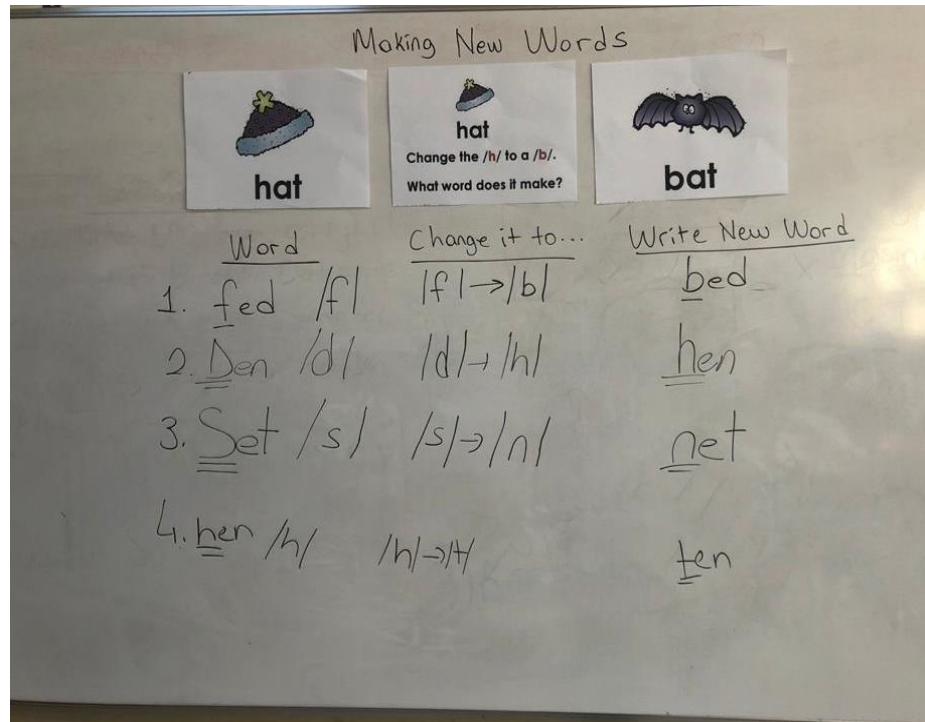 Making New Words
hat
hat
Change the /h/ to a /b/.
What word does it make?
bat
Word
Change it to...
Write New Word
1. fed /f/ /f/→/b/ bed
2. Den /d/ /d/→/h/ hen
3. Set /s/ /s/→/n/ net
4. hen /h/ /h/→/t/ ten